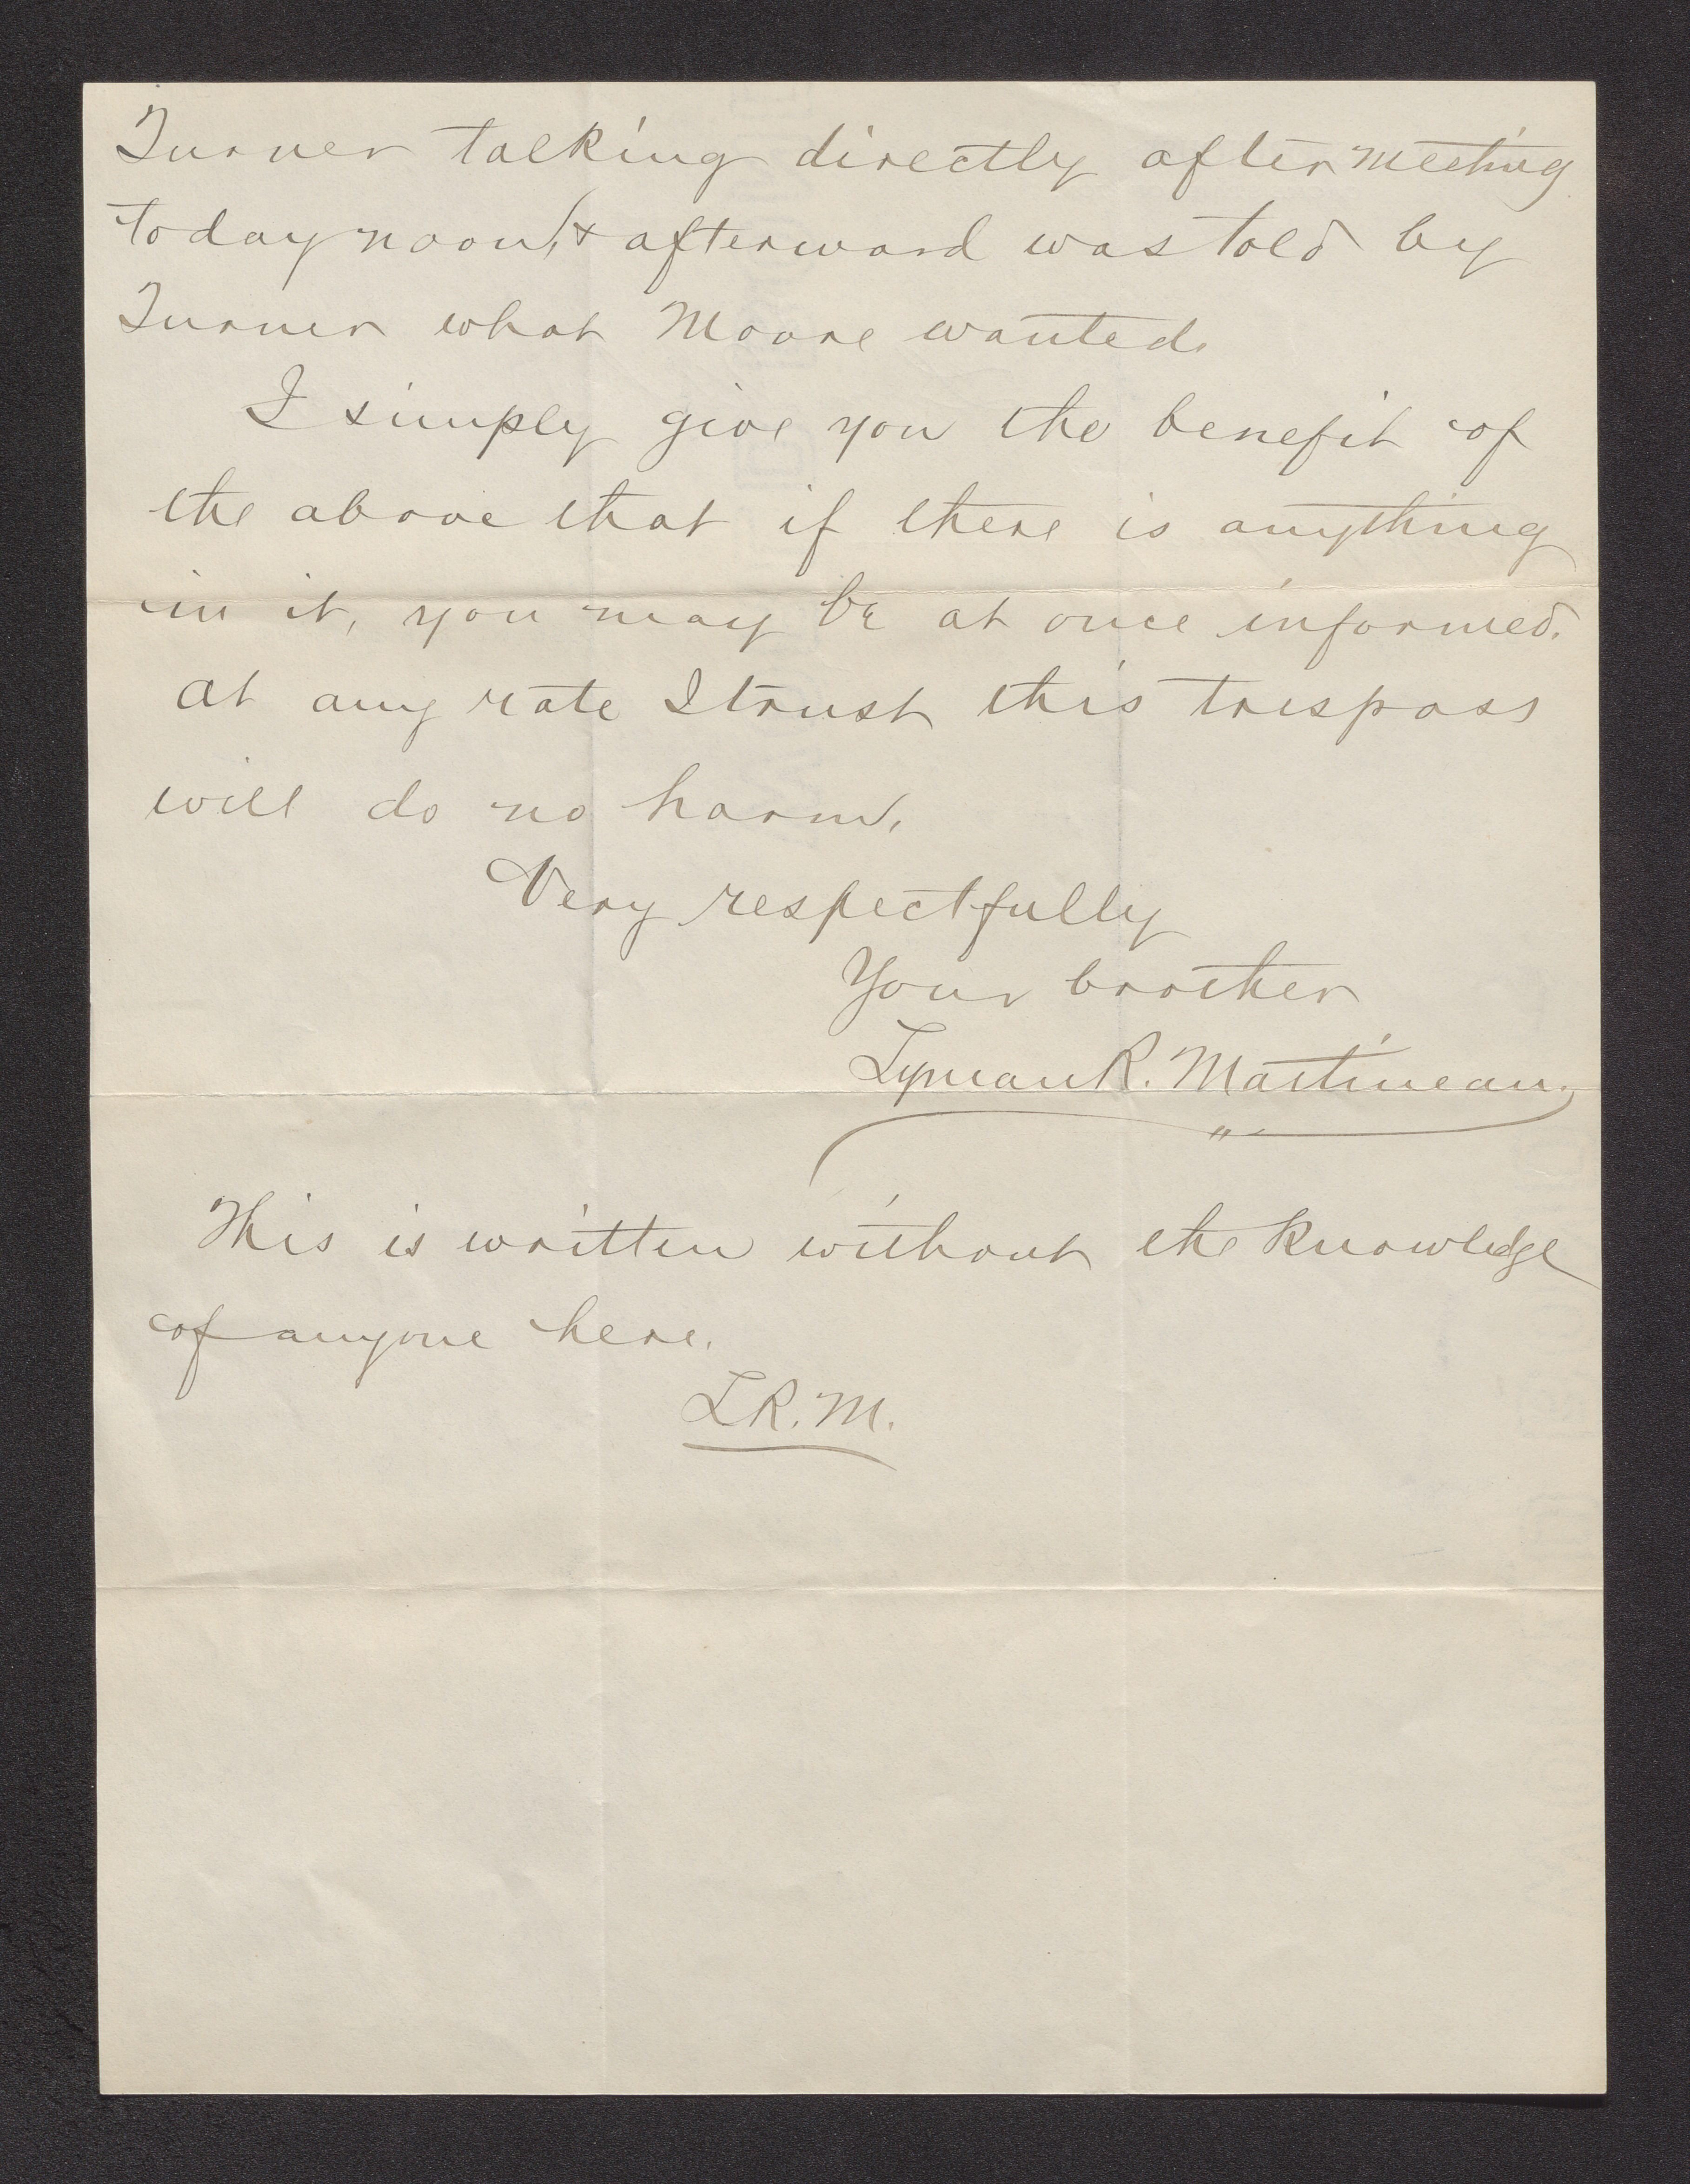 Turner talking directly after meeting
today noon, & afterward was told by
Turner what Moore wanted.
I simply give you the benefit of
the above that if there is anything
in it, you may be at once informed.
at any rate I trust this trespass
will do no harm.
Very respectfully
Your brother
Lyman R. Martineau.
This is written without the knowledge
of anyone here.
L.R.M.